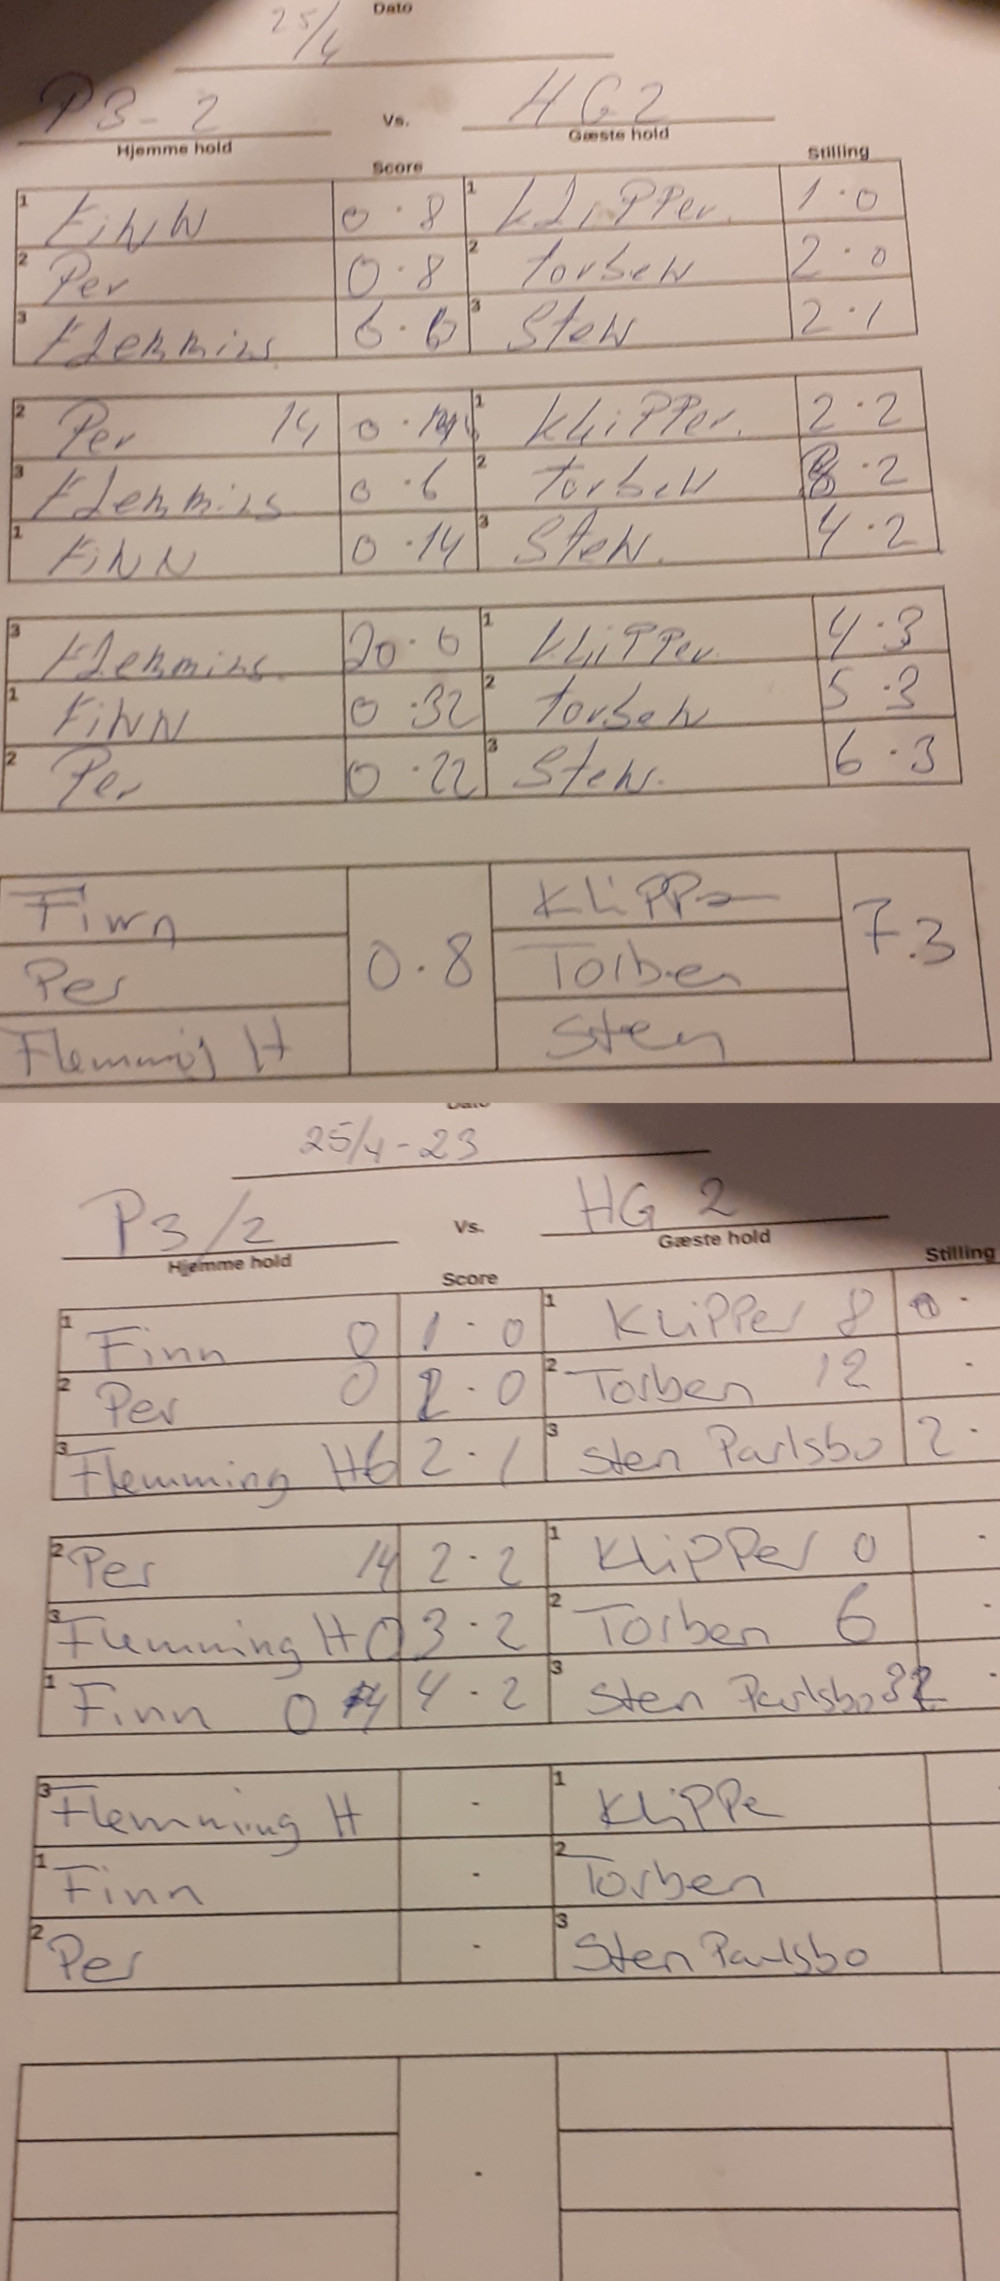 Dato
25/4
P3-2 Vs. HG2
Hjemme hold Gæste hold
Score Stilling
1 Finn 0·8 1 Klipper. 1·0
2 Per 0·8 2 Torben 2·0
3 Flemming 6·6 3 Sten 2·1
2 Per 14 0· 1 Klipper. 2·2
3 Flemming 0·6 2 Torben 3·2
1 Finn 0·14 3 Sten. 4·2
3 Flemming 20·6 1 Klipper 4·3
1 Finn 0·32 2 Torben 5·3
2 Per 0·22 3 Sten. 6·3
Finn Klipper
Per 0·8 Torben 7.3
Flemming H Sten
Dato
25/4-23
P3/2 Vs. HG 2
Hjemme hold Gæste hold
Score Stilling
1 Finn 0 1·0 1 Klipper 8 0·
2 Per 0 2·0 2 Torben 12 ·
3 Flemming H 6 2·1 3 Sten Parlsbo 2·
2 Per 14 2·2 1 Klipper 0 ·
3 Flemming H 0 3·2 2 Torben 6 ·
1 Finn 0 4·2 3 Sten Parlsbo 32 ·
3 Flemming H · 1 Klippe
1 Finn · 2 Torben
2 Per · 3 Sten Parlsbo
·